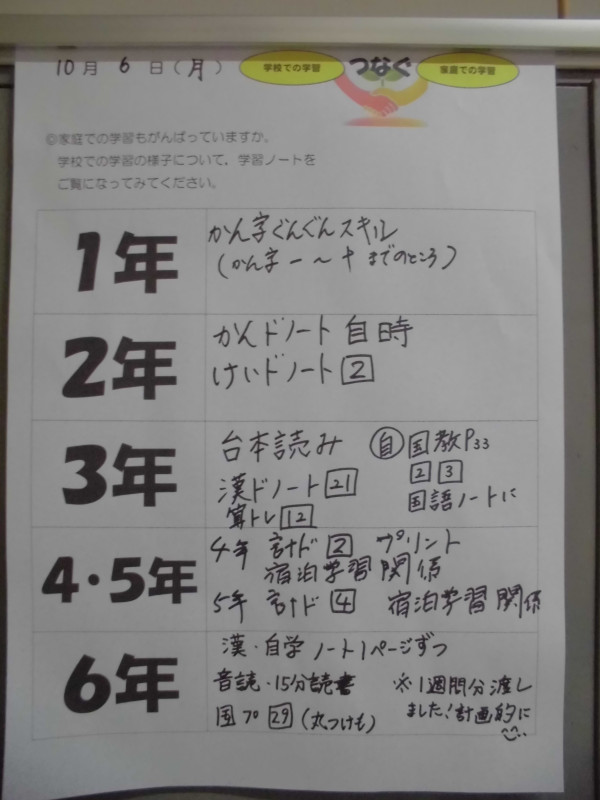 10月 6 日(月)
学校での学習 つなぐ 家庭での学習
◎家庭での学習もがんばっていますか。
学校での学習の様子について、学習ノートを
ご覧になってみてください。
1年
かん字ぐんぐんスキル
(かん字一～十までのところ)
2年
かんドノート 自 時
けいドノート 2
3年
台本読み
漢ドノート 21
算トレ 12
自 国教P33
2 3
国語ノートに
4・5年
4年 計ド 2 プリント
宿泊学習関係
5年 計ド 4 宿泊学習関係
6年
漢・自学ノート1ページずつ
音読・15分読書
国プ 29 (丸つけも)
※1週間分渡し
ました!計画的に